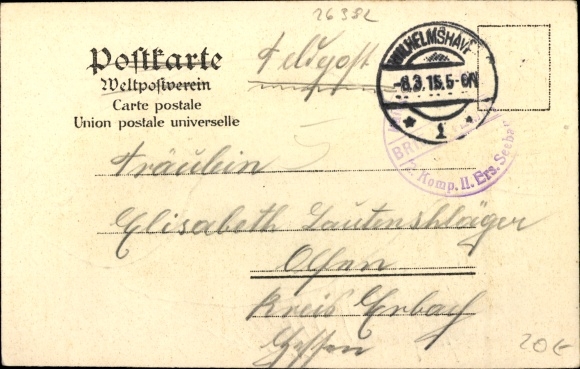 26382
Postkarte
Weltpostverein
Carte postale
Union postale universelle
Feldpost
WILHELMSHAV
-8.3.15.5-6N
* 1 *
BR
Komp. II. Ers. Seeba
Fräulein
Elisabeth Lautenschläger
Olfen
Kreis Erbach
Hessen
20€